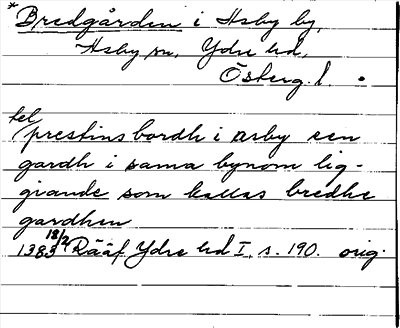 *Bredgården i Asby by,
Asby sn, Ydre hd,
Österg. l.
tel
prestins bordh i asby een
gardh i sama bynom lig-
giande som kallas bredhe
gardhen
1383 18/2 Rääf Ydre hd I, s. 190. orig.